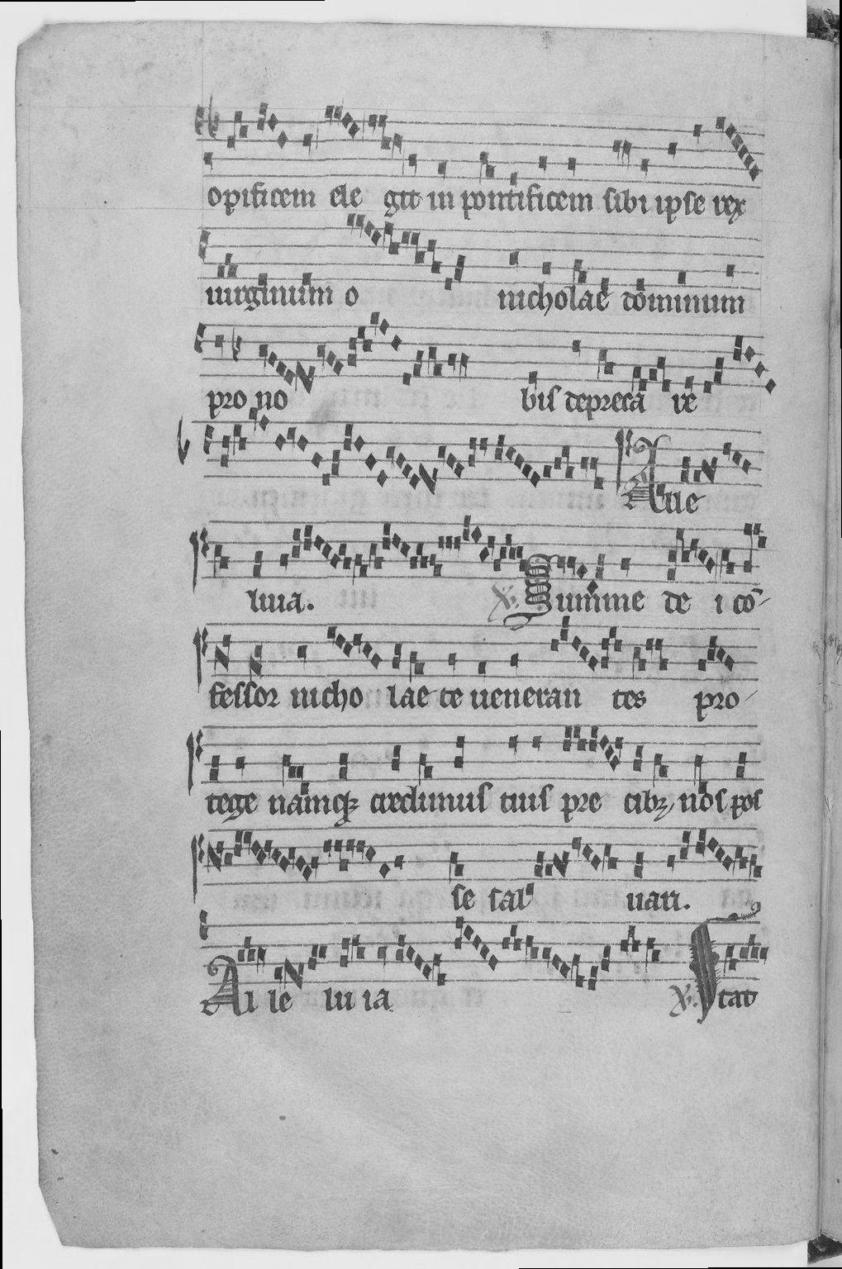 opificem ele git in pontificem sibi ipse rex
uirginum o nicholae dominum
pro no bis depreca re
Alle
luia.
℣. Summe de i cō
fessor nicho lae te ueneran tes pro
tege namq; credimus tuis pre cibꝫ nos pos
se sal uari.
Al le lu ia ℣.